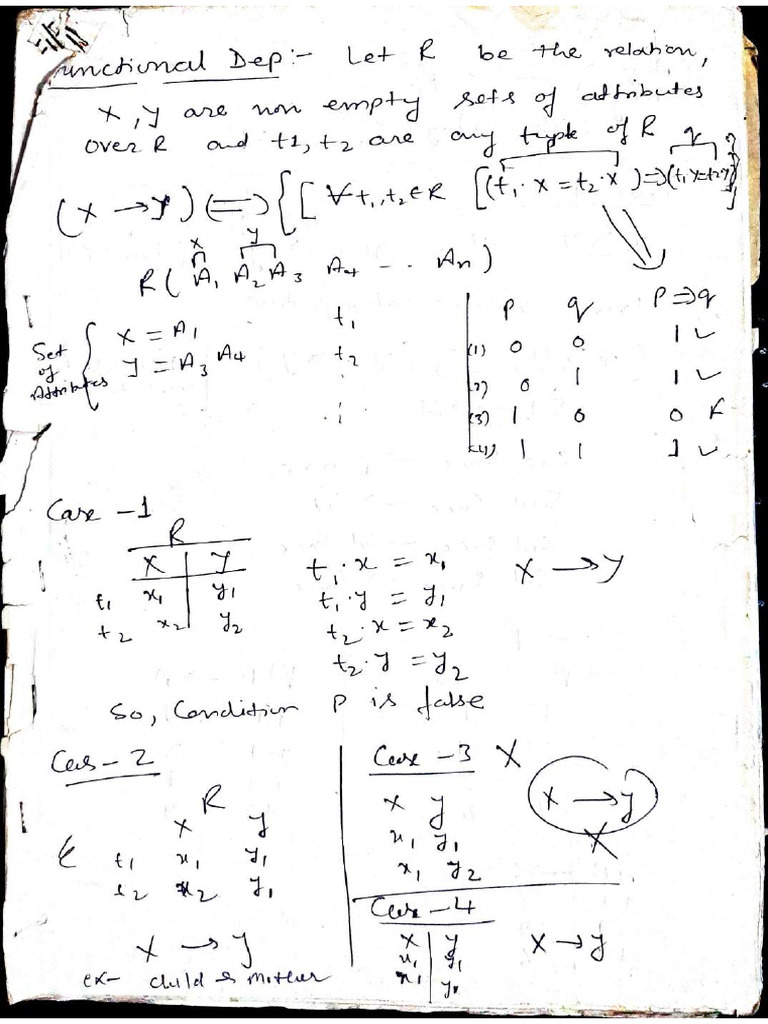 unctional Dep:- Let R be the relation,
X, Y are non empty sets of attributes
over R and t1, t2 are any tuple of R
q
(X → Y) ⟺ { [ ∀ t1, t2 ∈ R [(t1.X = t2.X) ⇒ (t1.Y = t2.Y)] }
x y
R( A1 A2 A3 A4 - .. An )
p q P ⇒ q
Set of Attributes { X = A1 t1
Y = A3 A4 t2
(1) 0 0 1 ✓
(2) 0 1 1 ✓
(3) 1 0 0
(4) 1 1 1 ✓
Case - 1
R
X Y
t1 x1 y1
t2 x2 y2
t1.x = x1
t1.y = y1
t2.x = x2
t2.y = y2
X → Y
So, Condition P is false
Cas - 2
R
X Y
t1 x1 y1
t2 x2 y1
X → Y
ex- child & mother
Case - 3 X
X Y
x1 y1
x1 y2
X → Y
X
Case - 4
X Y
x1 y1
x1 y1
X → Y